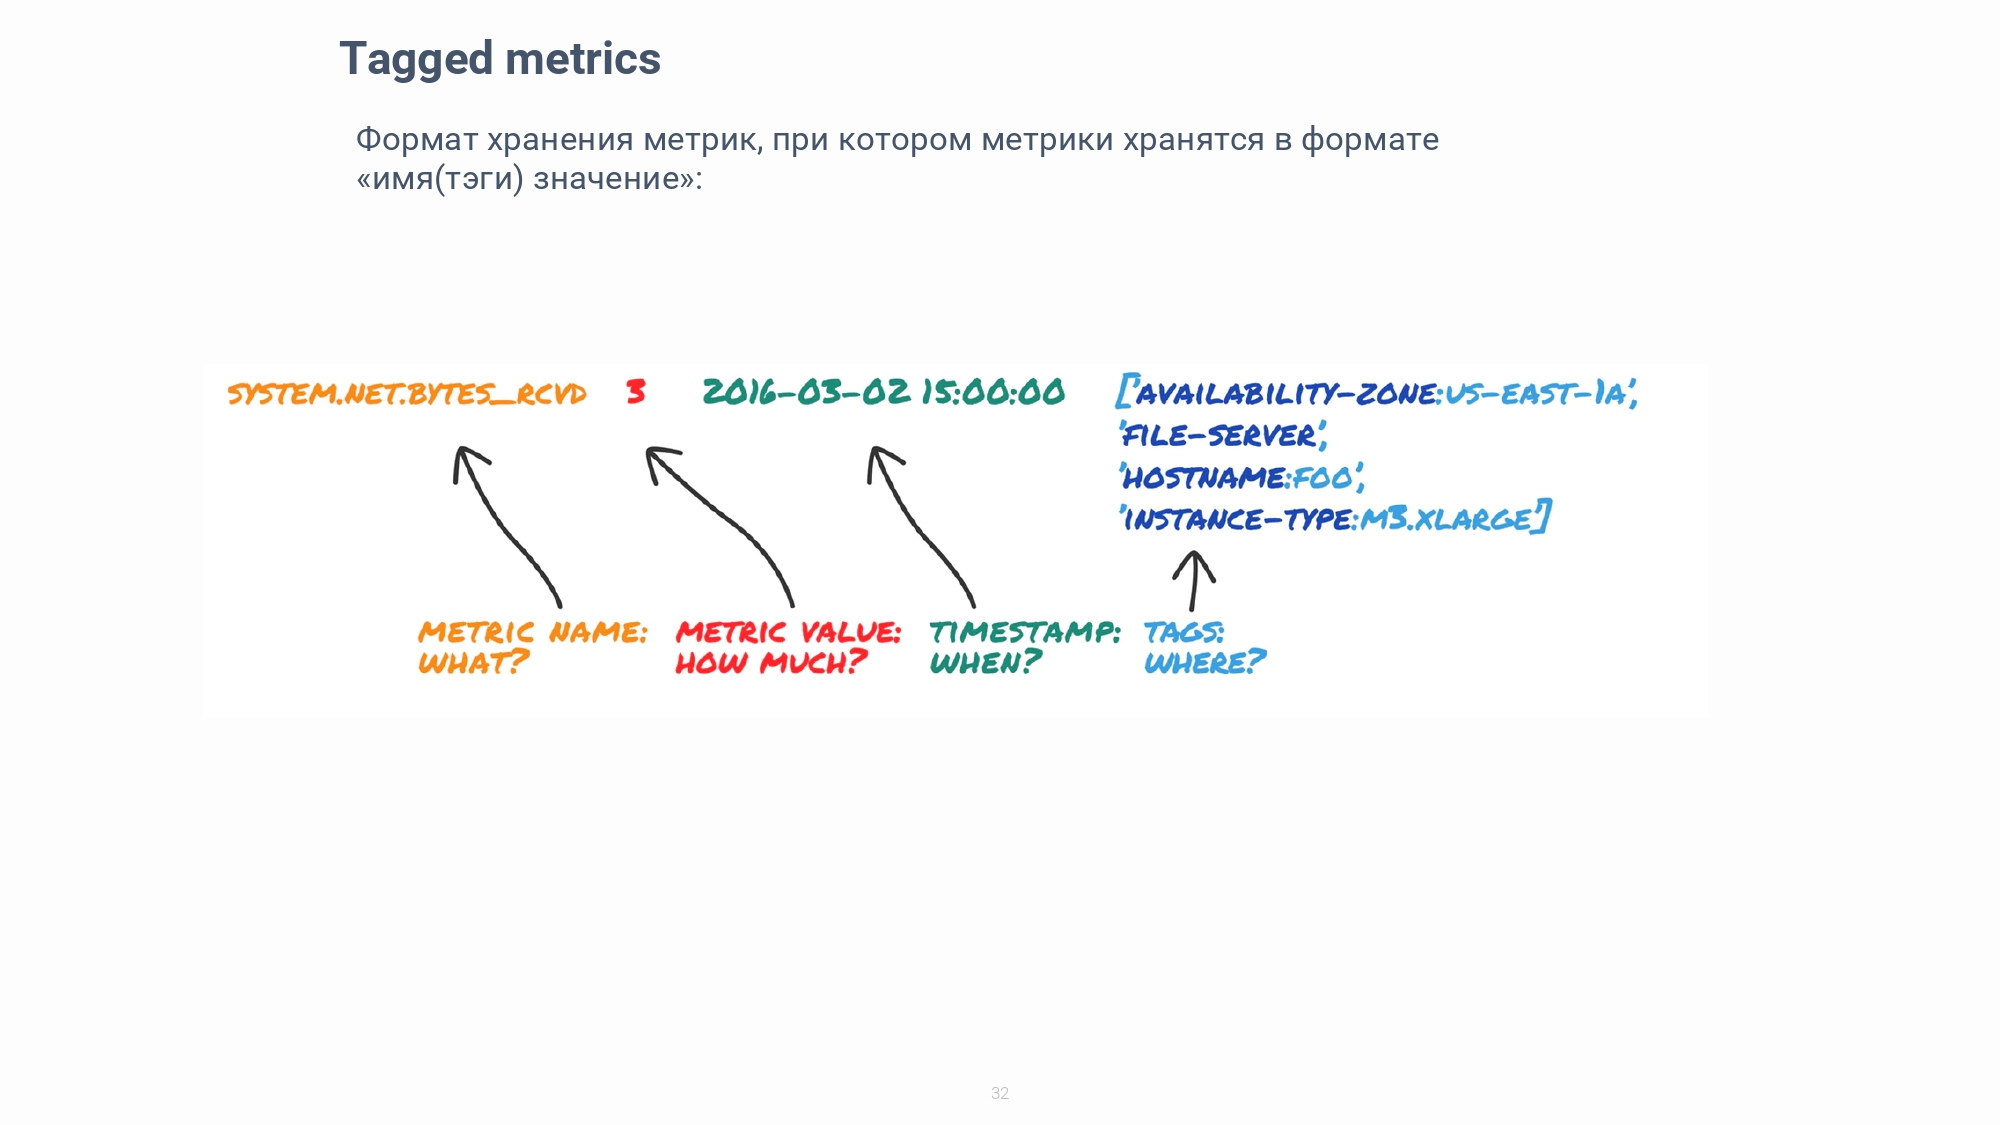 Tagged metrics
Формат хранения метрик, при котором метрики хранятся в формате
«имя(тэги) значение»:
SYSTEM.NET.BYTES_RCVD 3 2016-03-02 15:00:00 ['AVAILABILITY-ZONE:US-EAST-1A',
'FILE-SERVER',
'HOSTNAME:FOO',
'INSTANCE-TYPE:M3.XLARGE']
METRIC NAME: METRIC VALUE: TIMESTAMP: TAGS:
WHAT? HOW MUCH? WHEN? WHERE?
32